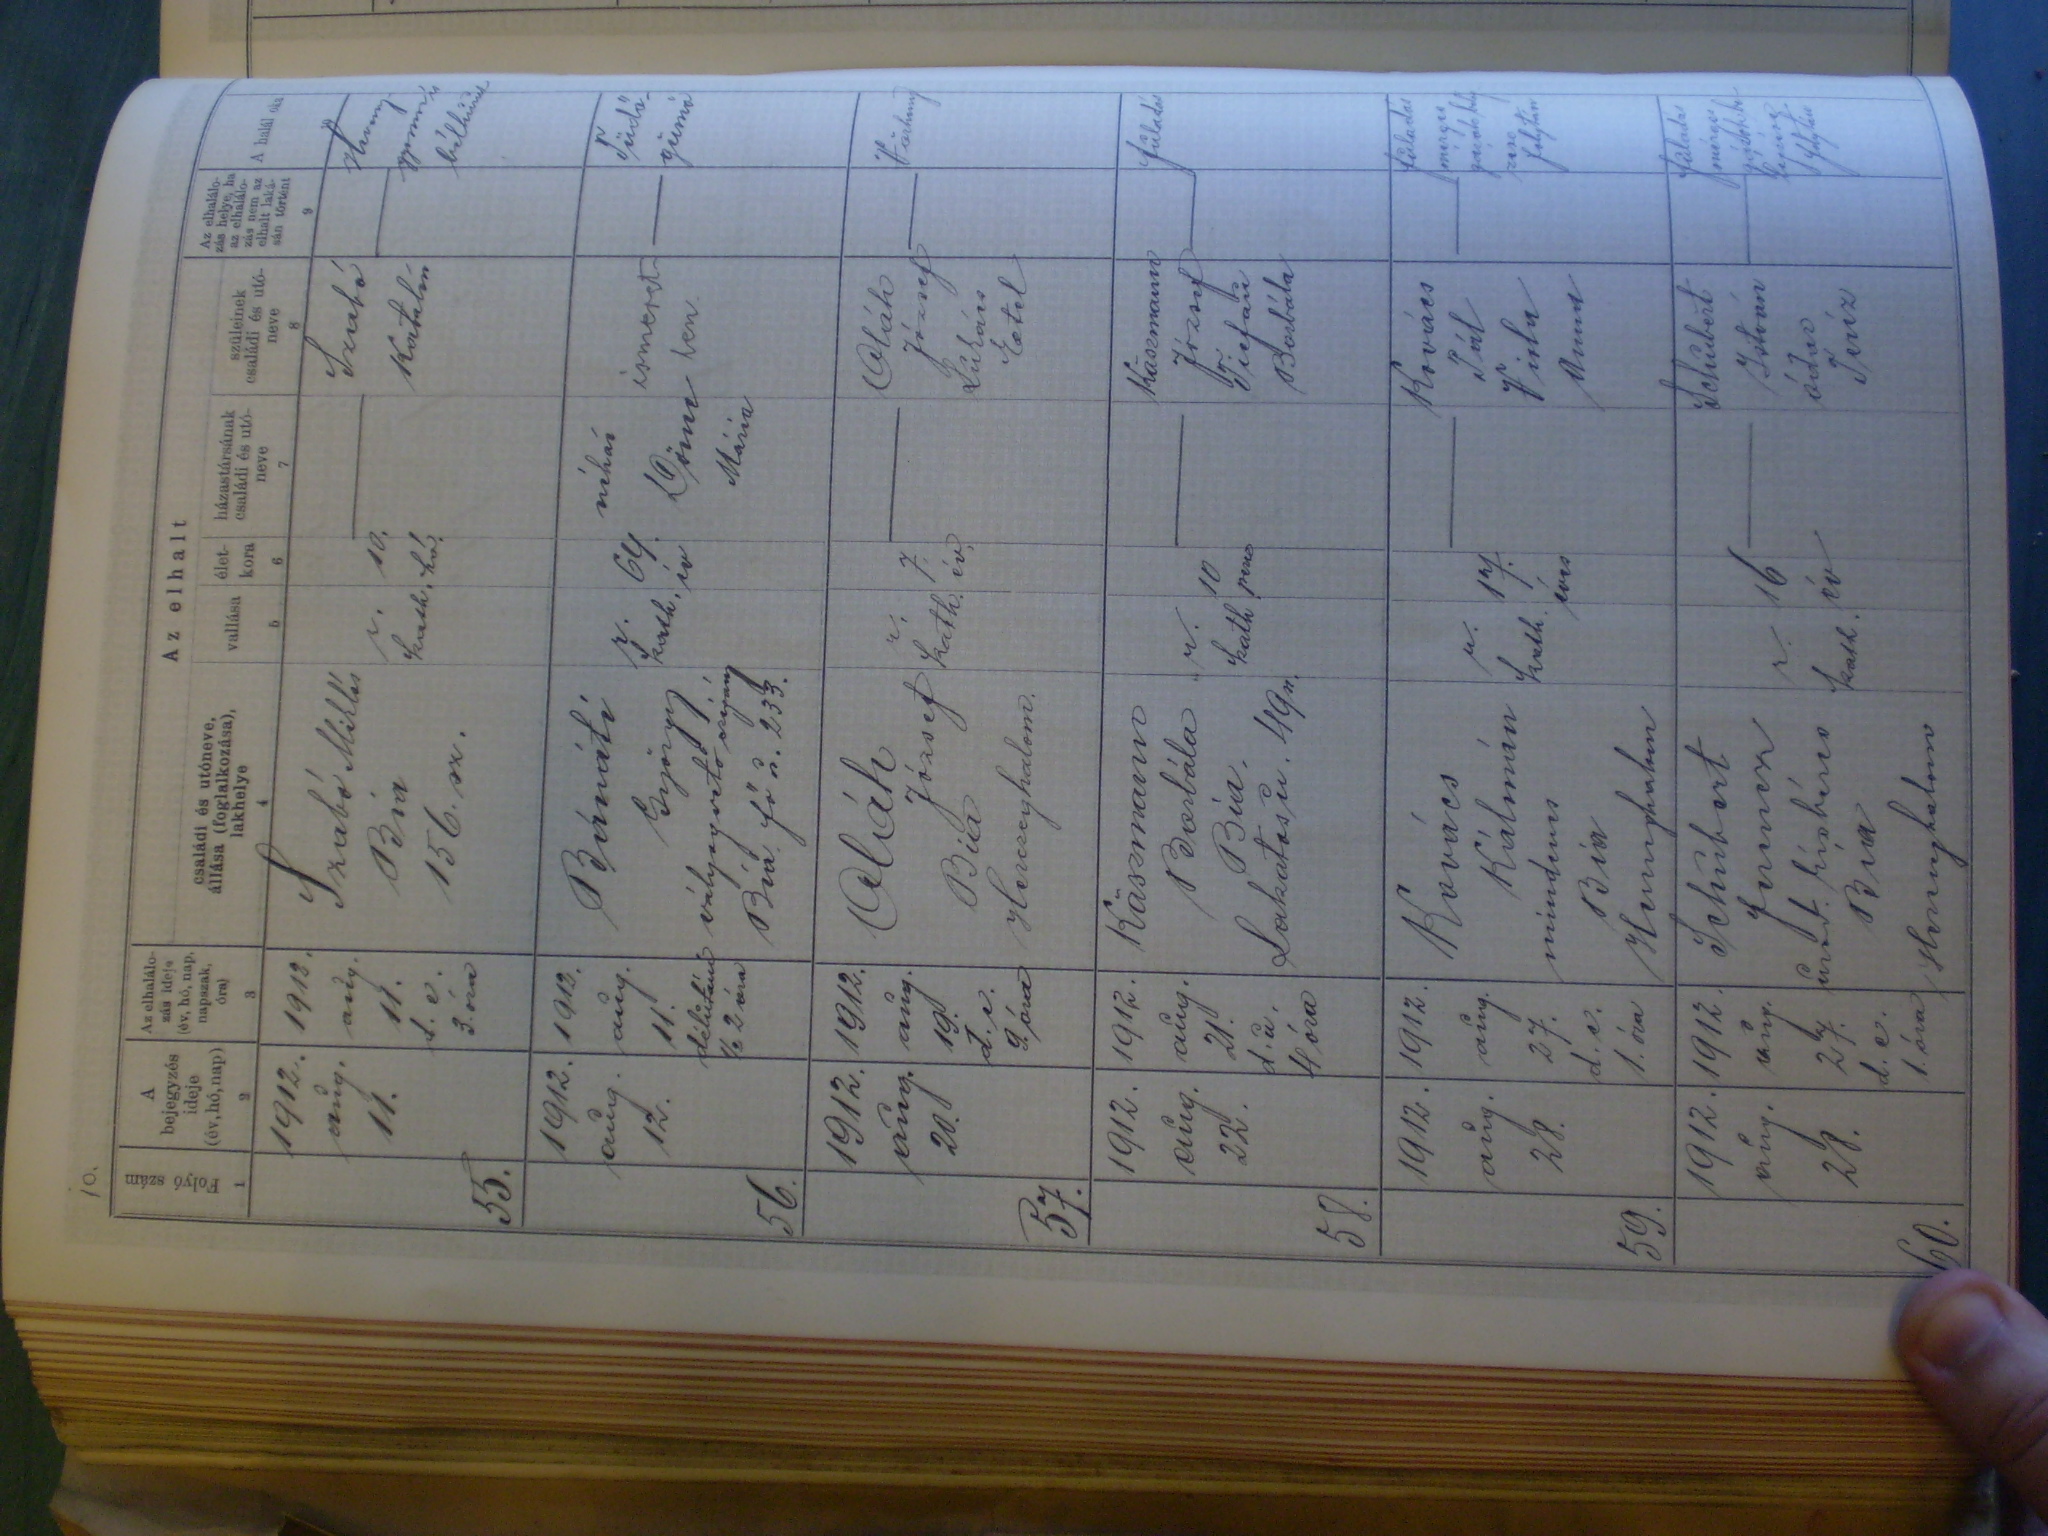 10.
Az elhalt
Folyó szám
A bejegyzés ideje (év, hó, nap)
Az elhalálo-
zás ideje
(év, hó, nap,
napszak,
óra)
családi és utóneve,
állása (foglalkozása),
lakhelye
vallása
élet-
kora
házastársának
családi és utó-
neve
szüleinek
családi és utó-
neve
Az elhalálo-
zás helye, ha
az elhalálo-
zás nem az
elhalt laká-
sán történt
A halál oka
1
2
3
4
5
6
7
8
9
55.
1912.
aug.
11.
1912.
aug.
11.
d. e.
3 óra
Szabó Miklós
Bia
156. sz.
r.
kath.
10.
hó.
Szabó
Katalin
56.
1912.
aug.
12.
1912.
aug.
11.
délután
½ 2 óra
Bánáti
György
Bia fő u. 233.
r.
kath.
64.
év
néhai
Döme
Mária
ismeret-
len
Tüdő-
gümő
57.
1912.
aug.
20.
1912.
aug.
19.
d. e.
9 óra
Oláh
József
Bia
Herczeghalom.
r.
kath.
7.
év.
Oláh
József
Lukács
Etel
Vörheny
58.
1912.
aug.
22.
1912.
aug.
21.
d. u.
4 óra
Käszmann
Borbála
Bia.
Lakatos u. 49 sz.
r.
kath.
10
perc
Käszmann
József
Borbála
fúladás
59.
1912.
aug.
28.
1912.
aug.
27.
d. e.
1. óra
Kovács
Kálmán
mindenes
Bia
Herczeghalom
r.
kath.
17.
éves
Kovács
Pál
Anna
fúladás
mérges
folytán
60.
1912.
aug.
28.
1912.
aug.
27.
d. e.
1. óra
Schubert
Ferencz
Bia
Herczeghalom
r.
kath.
16
év
Schubert
István
Teréz
fúladás
mérges
folytán